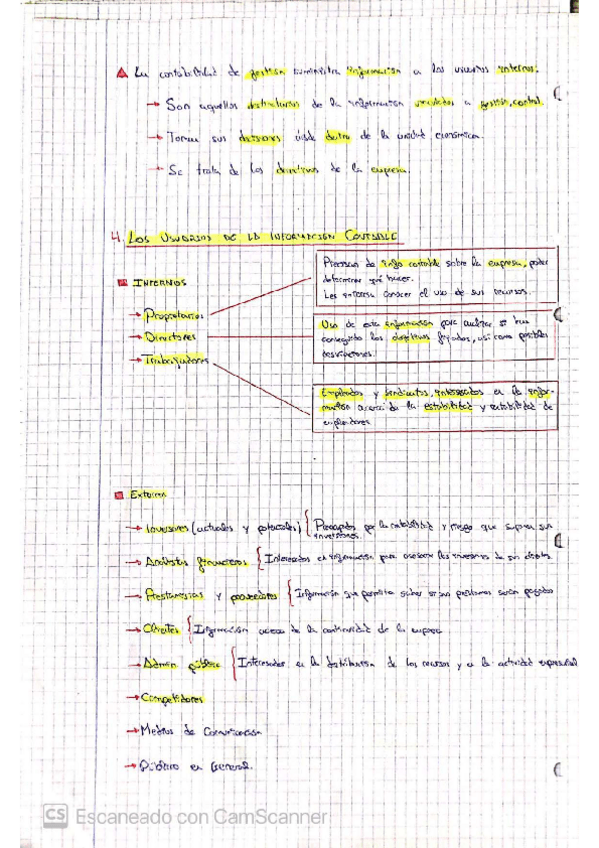 La contabilidad de gestión suministra información a los usuarios internos.
→ Son aquellos destinatarios de la información vinculados a gestión, control.
→ Toman sus decisiones desde dentro de la unidad económica.
→ Se trata de los directivos de la empresa.
4. LOS USUARIOS DE LA INFORMACIÓN CONTABLE
INTERNOS
Precisan de info contable sobre la empresa, poder
determinar qué hacer.
Les interesa conocer el uso de sus recursos.
→ Propietarios
→ Directores
→ Trabajadores
Uso de esta información para analizar si han
conseguido los objetivos fijados, así como posibles
desviaciones.
Empleados y sindicatos, interesados en la infor-
mación acerca de la estabilidad y rentabilidad de
empleadores
Externos
→ Inversores (actuales y potenciales) { Preocupados por la rentabilidad y riesgo que supone sus
inversiones.
→ Analistas financieros { Interesados en información para asesorar las inversiones de sus clientes
→ Prestamistas y proveedores { Información que permita saber si sus préstamos serán pagados
→ Clientes { Información acerca de la continuidad de la empresa
→ Admin pública { Interesados en la distribución de los recursos y en la actividad empresarial
→ Competidores
→ Medios de Comunicación
→ Público en General.
CS Escaneado con CamScanner